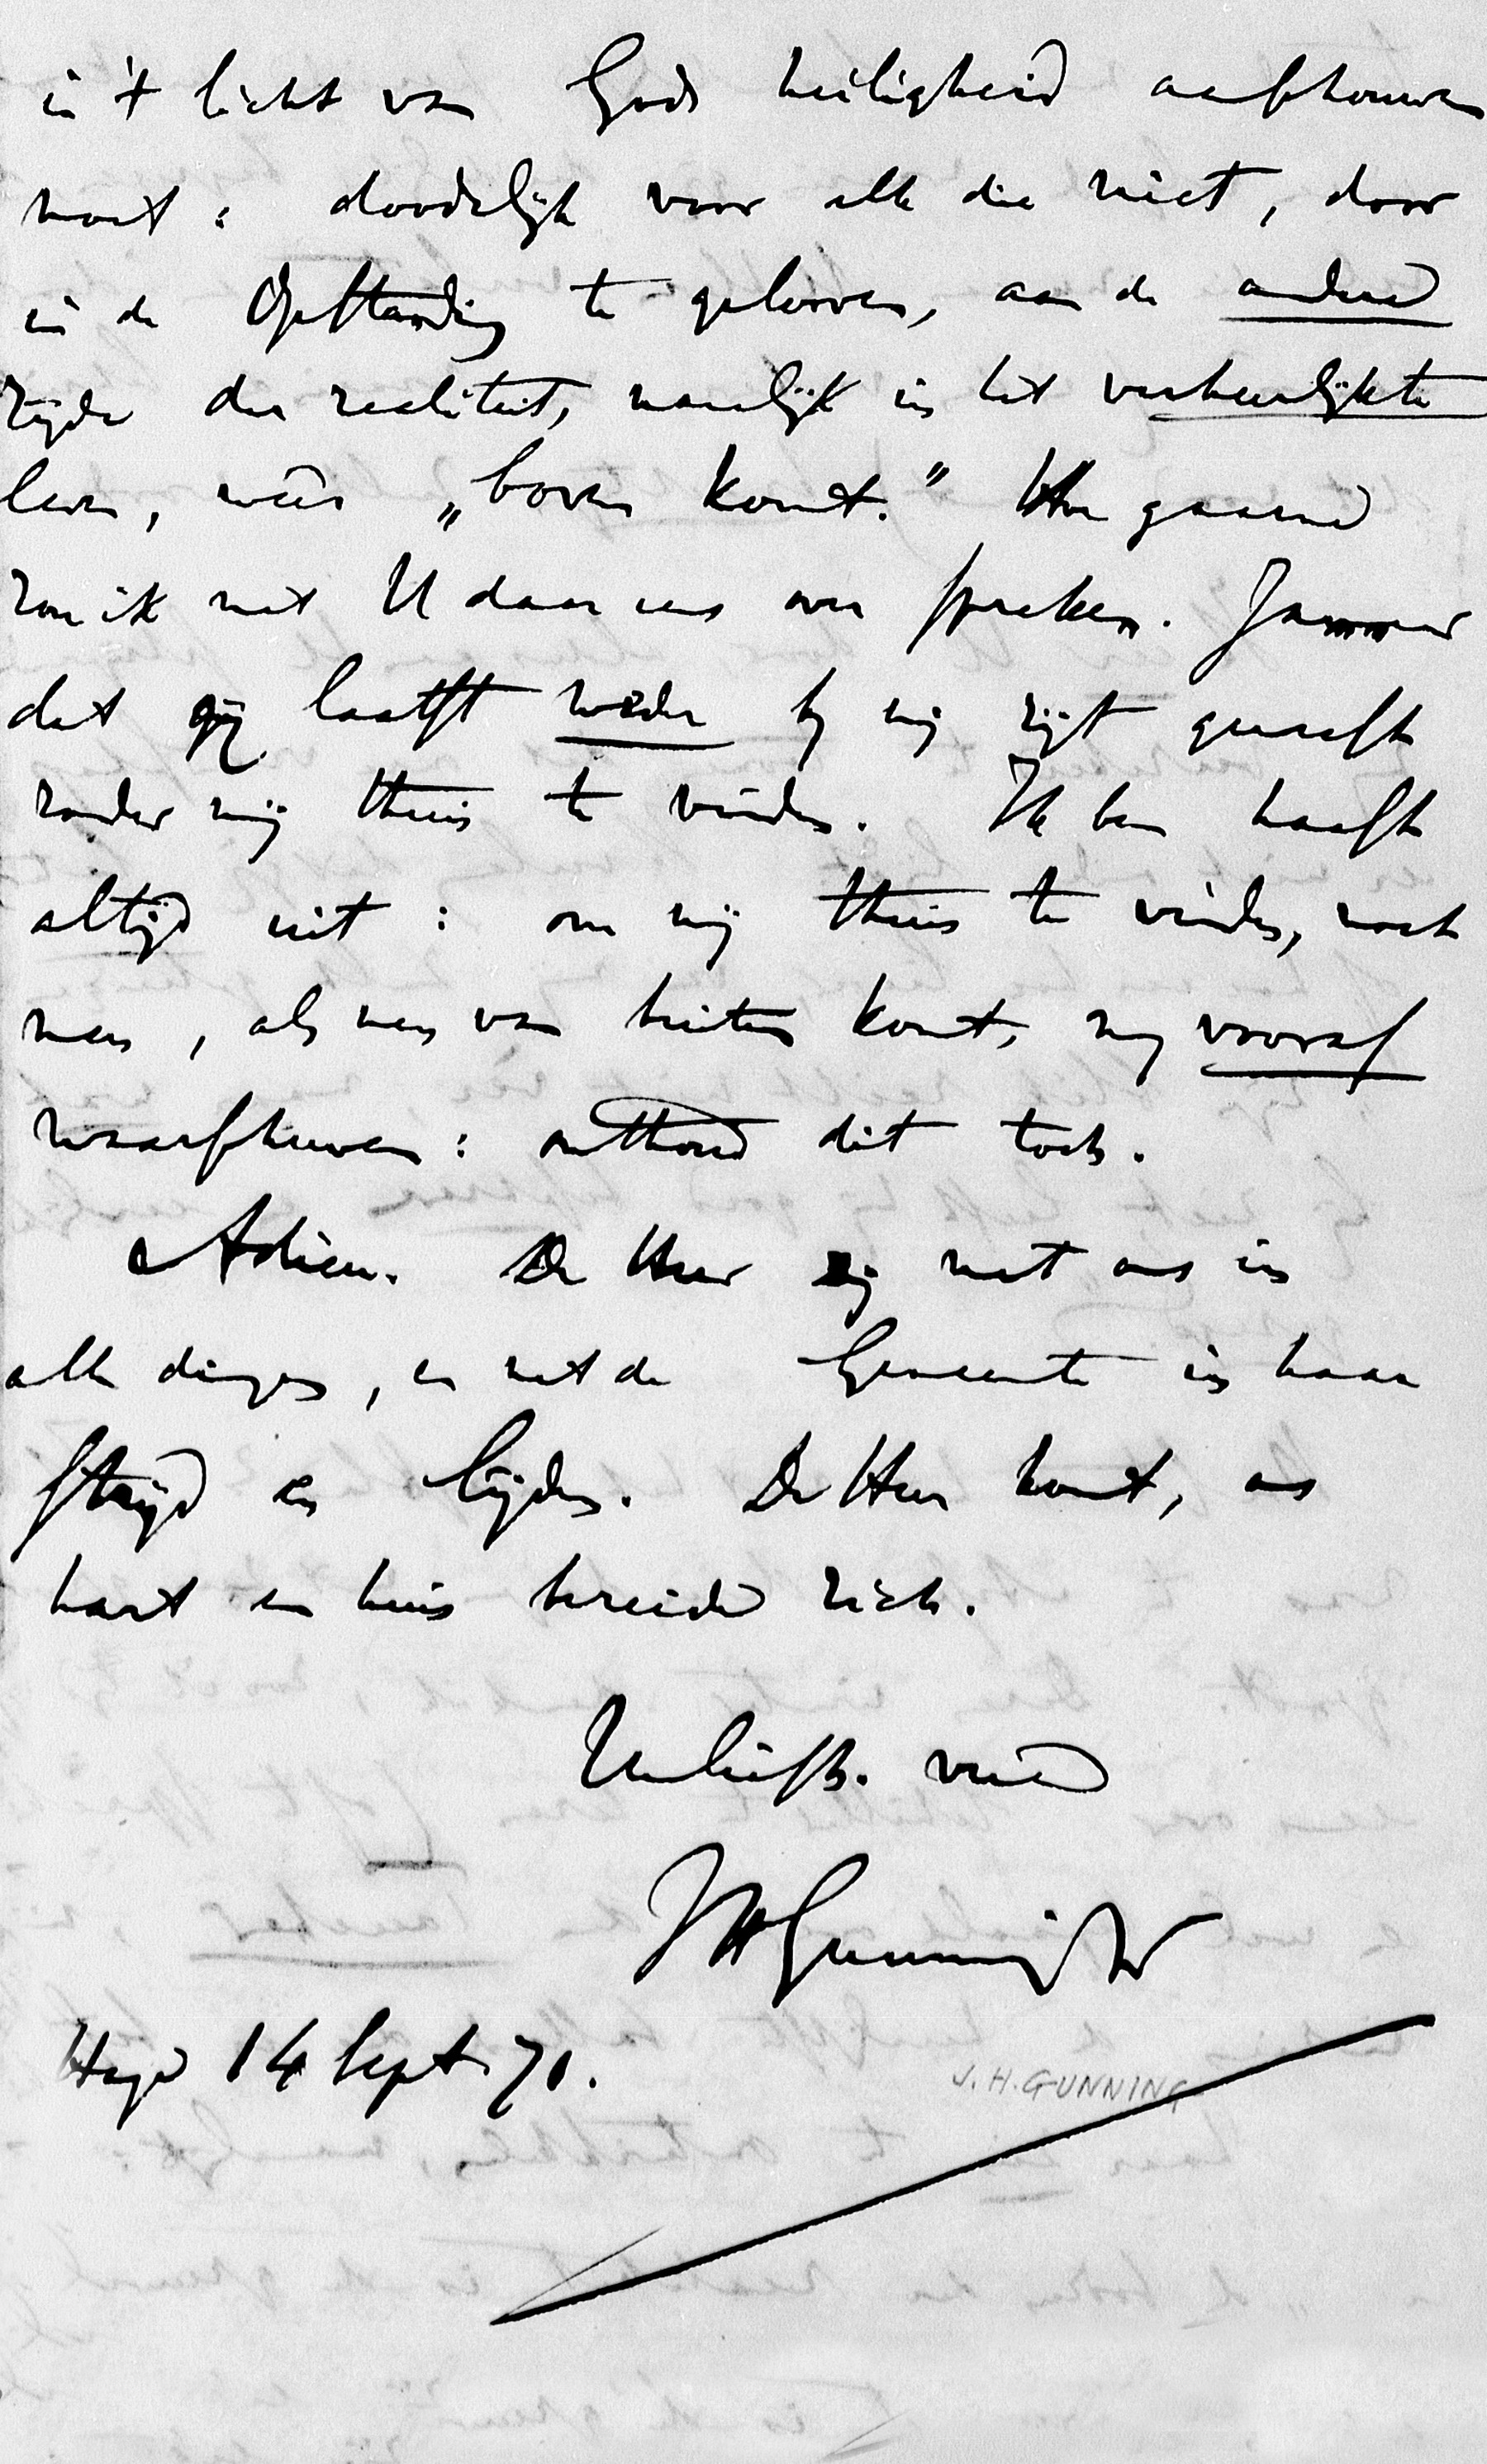 in 't licht van Gods heiligheid aanschouwen
moet: doodelijk voor alle die niet, door
in de Opstanding te gelooven, aan de andere
zijde der realiteit, namelijk in het verheerlijkte
leven, weêr „boven komt." Hoe gaarne
zou ik met U daar eens over spreken. Jammer
dat gij laatst weder bij mij zijt geweest
zonder mij thuis te vinden. Ik ben haast
altijd uit: om mij thuis te vinden, moet
men, als men van buiten komt, mij vooraf
waarschuwen: onthoud dit toch.
Adieu. De Heer zij met ons in
alle dingen, en met de Gemeente in haar
strijd en lijden. De Heer komt, ons
hart en huis bereide zich.
Uw liefh. vriend
JHGunning Jr
Hage 14 Sept. 71.
J. H. GUNNING